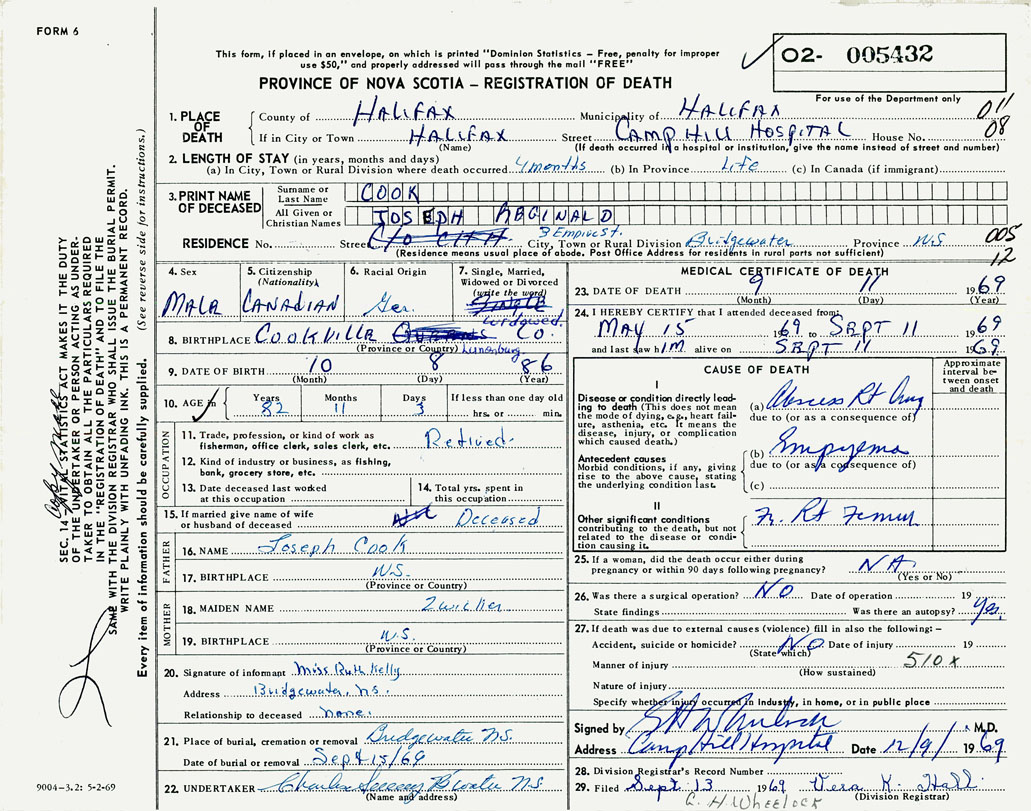 FORM 6
This form, if placed in an envelope, on which is printed "Dominion Statistics – Free, penalty for improper
use $50," and properly addressed will pass through the mail "FREE"
02- 005432
PROVINCE OF NOVA SCOTIA – REGISTRATION OF DEATH
For use of the Department only
1. PLACE OF DEATH
County of HALIFAX Municipality of HALIFAX 011
If in City or Town HALIFAX Street CAMP HILL HOSPITAL House No. 08
(Name) (If death occurred in a hospital or institution, give the name instead of street and number)
2. LENGTH OF STAY (in years, months and days)
(a) In City, Town or Rural Division where death occurred 4 months (b) In Province Life (c) In Canada (if immigrant)
3. PRINT NAME OF DECEASED
Surname or Last Name COOK
All Given or Christian Names JOSEPH REGINALD
RESIDENCE No. Street C/O 3 Empire St. City, Town or Rural Division Bridgewater Province N.S. 005
(Residence means usual place of abode. Post Office Address for residents in rural parts not sufficient) 12
4. Sex MALE
5. Citizenship (Nationality) CANADIAN
6. Racial Origin Ger.
7. Single, Married, Widowed or Divorced (write the word) Single Widowed
8. BIRTHPLACE COOKVILLE Lunenburg CO.
(Province or Country)
9. DATE OF BIRTH 10 8 86
(Month) (Day) (Year)
10. AGE in Years 82 Months 11 Days 3 If less than one day hrs. or min.
OCCUPATION
11. Trade, profession, or kind of work as fisherman, office clerk, sales clerk, etc. Retired
12. Kind of industry or business, as fishing, bank, grocery store, etc.
13. Date deceased last worked at this occupation
14. Total yrs. spent in this occupation
15. If married give name of wife or husband of deceased Deceased
FATHER
16. NAME Joseph Cook
17. BIRTHPLACE N.S.
(Province or Country)
MOTHER
18. MAIDEN NAME Zwicker
19. BIRTHPLACE N.S.
(Province or Country)
20. Signature of informant Miss Ruth Kelly
Address Bridgewater, N.S.
Relationship to deceased none.
21. Place of burial, cremation or removal Bridgewater N.S.
Date of burial or removal Sept 15/69
22. UNDERTAKER Charles B'water N.S.
(Name and address)
MEDICAL CERTIFICATE OF DEATH
23. DATE OF DEATH 9 11 1969
(Month) (Day) (Year)
24. I HEREBY CERTIFY that I attended deceased from:
MAY 15 1969 to SEPT 11 1969
and last saw him alive on SEPT 11 1969
CAUSE OF DEATH
Approximate interval between onset and death
I
Disease or condition directly leading to death (This does not mean the mode of dying, e.g., heart failure, asthenia, etc. It means the disease, injury, or complication which caused death.)
(a) Abscess Rt Lung
due to (or as a consequence of)
Antecedent causes
Morbid conditions, if any, giving rise to the above cause, stating the underlying condition last.
(b) Empyema
due to (or as a consequence of)
(c)
II
Other significant conditions contributing to the death, but not related to the disease or condition causing it.
Fr. Rt Femur
25. If a woman, did the death occur either during pregnancy or within 90 days following pregnancy? NA
(Yes or No)
26. Was there a surgical operation? NO Date of operation 19
State findings Was there an autopsy? Yes
27. If death was due to external causes (violence) fill in also the following: –
Accident, suicide or homicide? NO Date of injury 19
(State which)
Manner of injury 510X
(How sustained)
Nature of injury
Specify whether injury occurred in Industry, in home, or in public place
Signed by M.D.
Address Camp Hill Hospital Date 12/9/ 1969
28. Division Registrar's Record Number
29. Filed Sept. 13 1969 Vera K. Hall
(Division Registrar)
C. H. Wheelock
SEC. 14—VITAL STATISTICS ACT MAKES IT THE DUTY
OF THE UNDERTAKER OR PERSON ACTING AS UNDER-
TAKER TO OBTAIN ALL THE PARTICULARS REQUIRED
IN THE "REGISTRATION OF DEATH" AND TO FILE THE
SAME WITH THE DIVISION REGISTRAR WHO SHALL ISSUE THE BURIAL PERMIT.
WRITE PLAINLY WITH UNFADING INK. THIS IS A PERMANENT RECORD.
Every item of information should be carefully supplied. (See reverse side for instructions.)
9004–3.2: 5-2-69